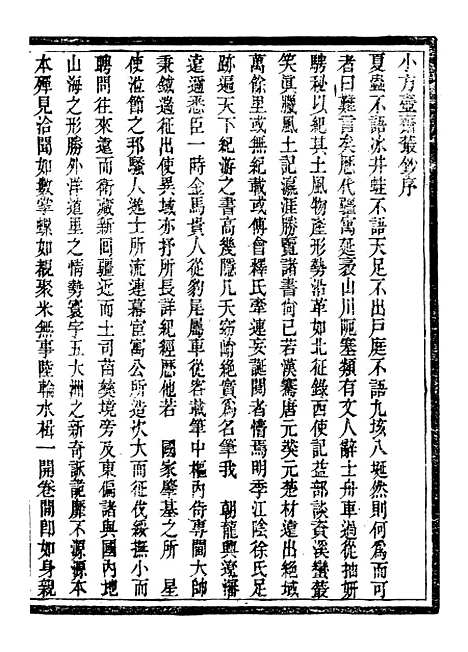 小方壺齋叢鈔序
夏蟲不語冰井蛙不語天足不出戶庭不語九垓八埏然則何爲而可
者曰難言矣歷代疆寓延袤山川阨塞類有文人辭士舟車過從抽妍
騁秘以紀其土風物產形勢沿革如北征錄西使記益部談資溪蠻叢
笑眞臘風土記瀛涯勝覽諸書尙已然若漢騫唐元奘元楚材遠出絕域
萬餘里或無紀載或傅會釋氏牽連妄誕閱者惜焉明季江陰徐氏足
跡遍天下紀游之書高幾隱几天窈崎絕實爲名筆我　朝龍興遼瀋
遠邇悉臣一時金馬貴人從豹尾屬車從容載筆中樞內侍專閫大師
秉鉞遄征出使異域亦抒所長詳紀經歷他若　國家肇基之所　星
使涖節之邦騷人逸士所流連幕宦寓公所造次大而征伐綏撫小而
聘問往來遠而衛藏新回疆近而土司苗獠境旁及東偏諸與國內地
山海之形勝外洋道里之情勢寰宇五大洲之新奇詼詭靡不源源本
本殫見洽聞如數掌螺如親聚米無事陸輪水楫一開卷閒卽如身親